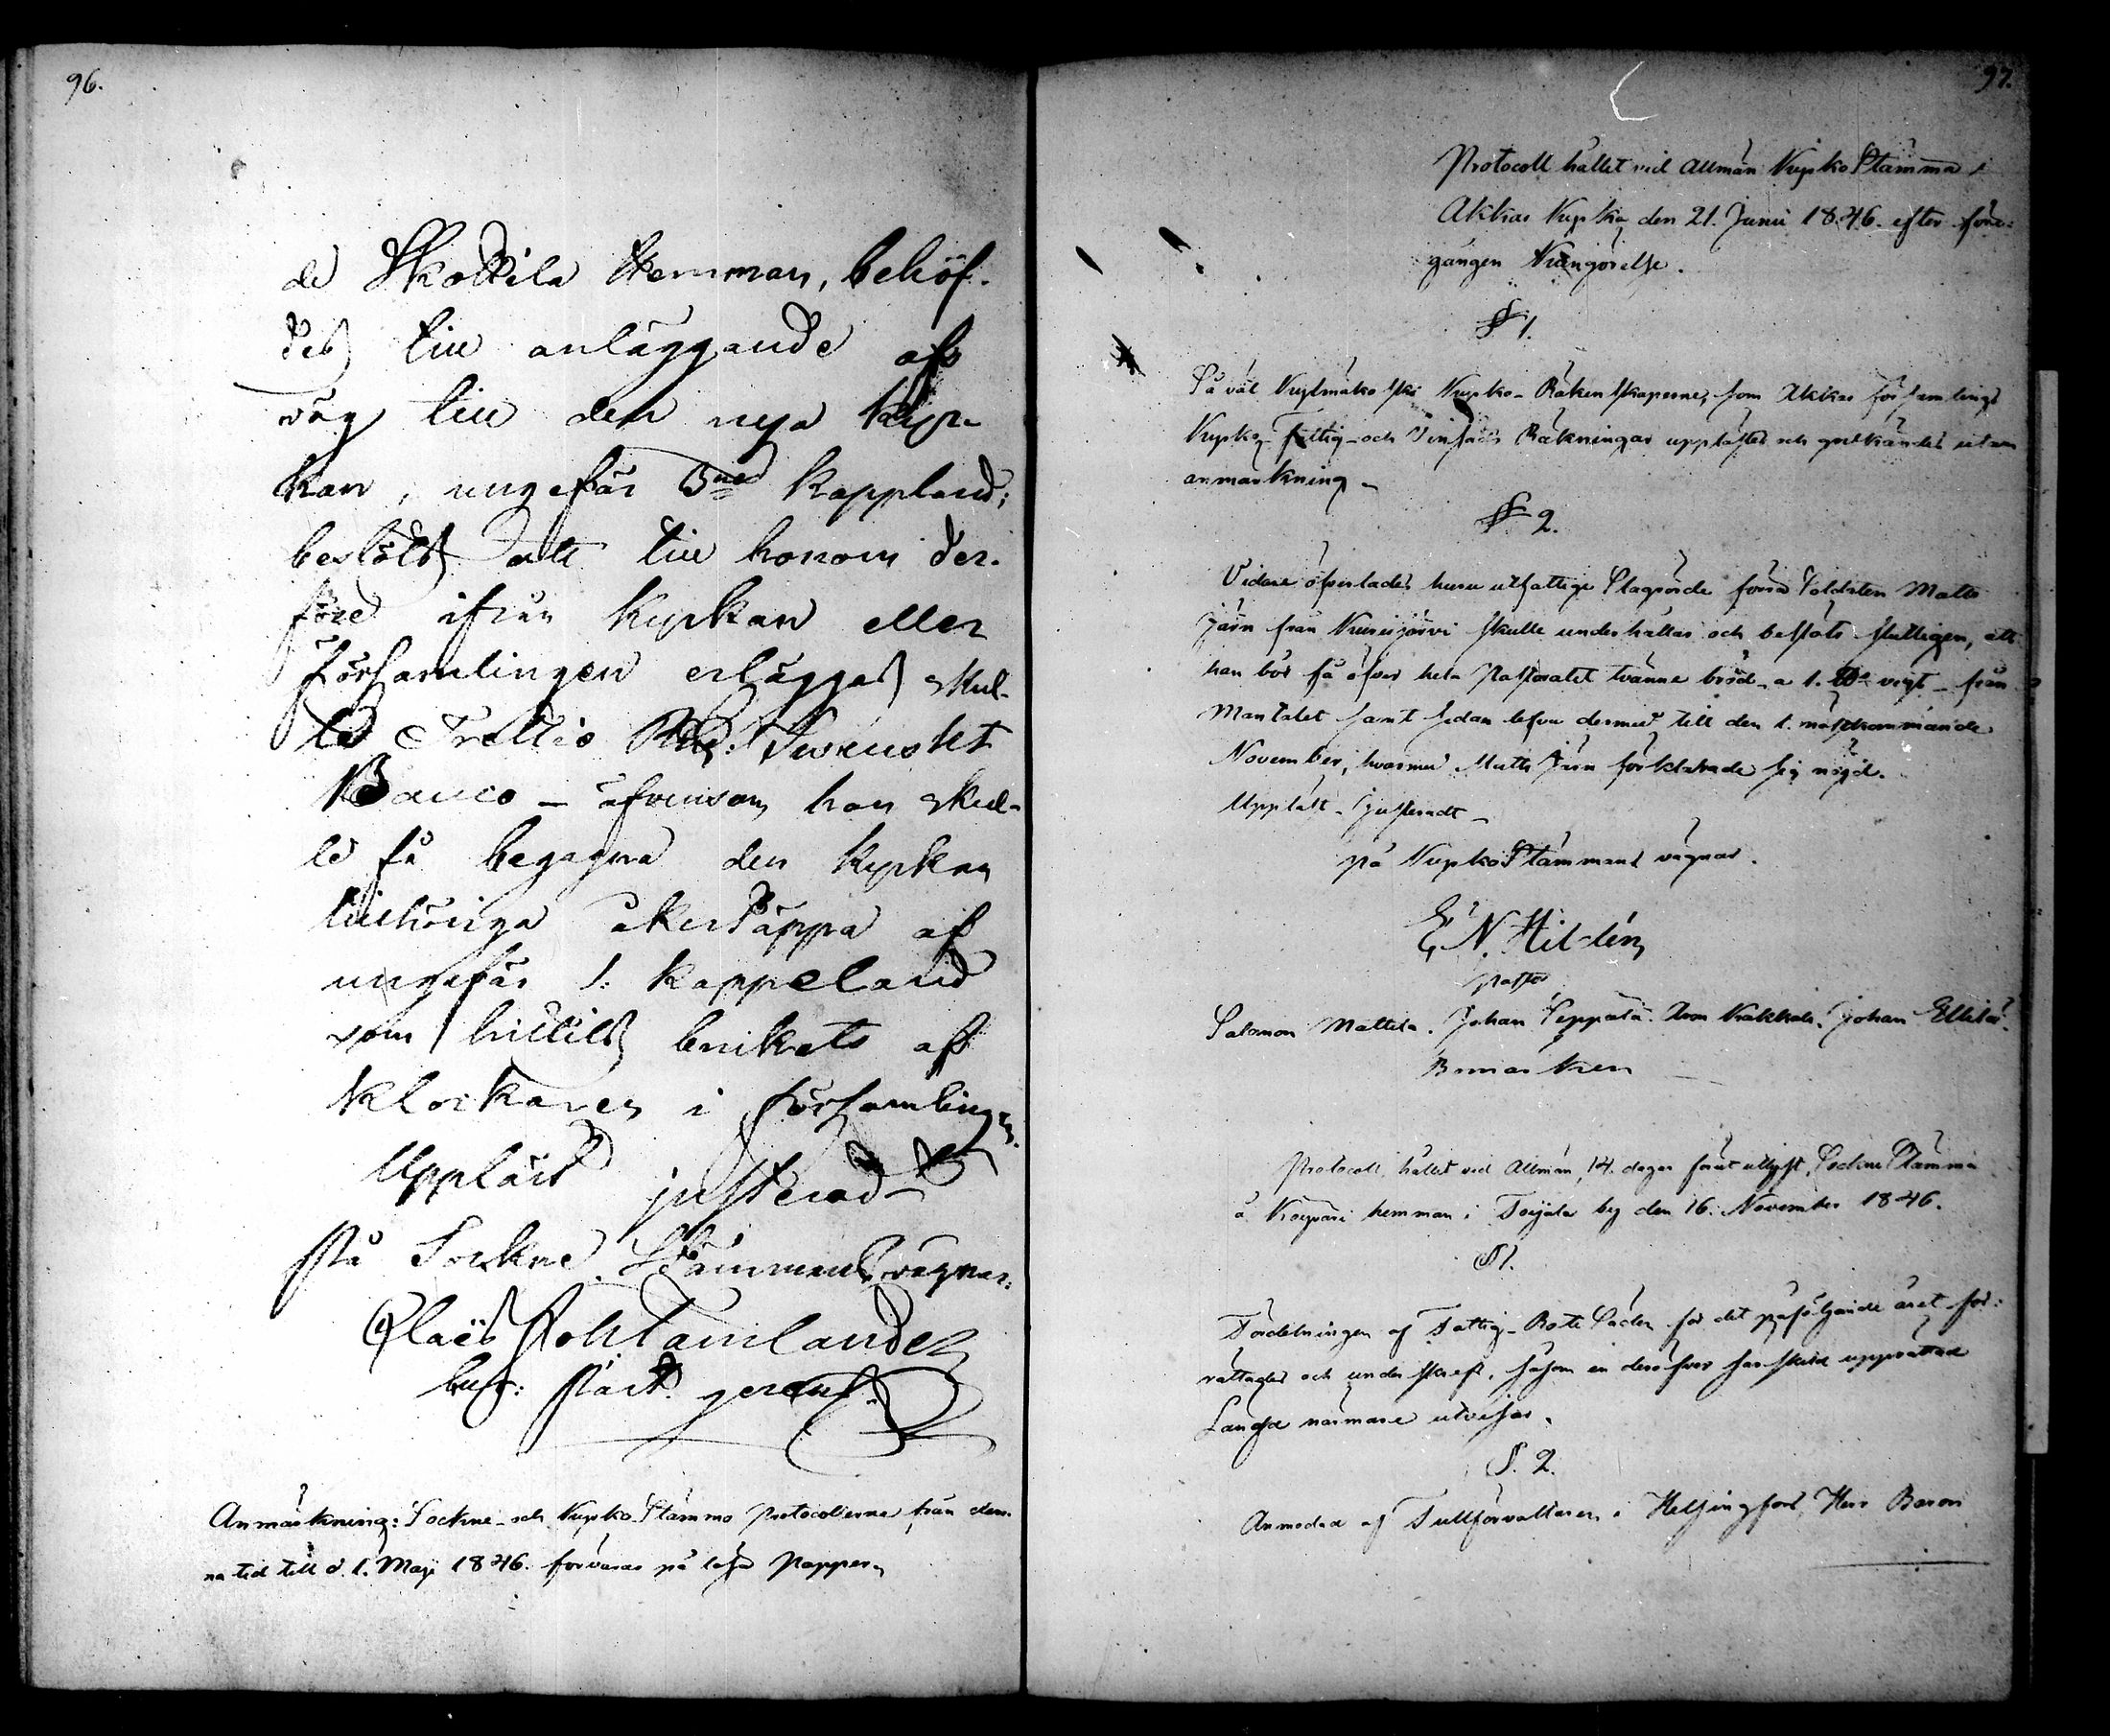 96.
de Skottila Hemman, behöf-
des till anläggande af
väg till den nya kyr-
kan, ungefär 3ne kappland;
beslöts att till honom der-
före ifrån kyrkan eller
församlingen erlägges skul-
le Trettio Rdr: Swenskt
Banco – äfvensom han skul-
le få begagna den kyrkan
tillhöriga åkertäppa af
ungefär 1. kappeland
som hittils brukats af
klockaren i församlingen.
Uppläst justerad
På Sockne Stämmans vägnar:
Claës Joh Tamlander
Past:
Anmärkning: Sockne- och Kyrko Stämmo Protocollerne från den-
na tid till d. 1. Maji 1846. förvaras på lösa Papper.
97.
Protocoll hållet vid Allmän Kyrko Stämma i
Akkas Kyrka den 21. Junii 1846. efter före-
gången Kungörelse.
§ 1.
Så väl Kylmäkoski Kyrko-Räkenskaperne, som Akkas församlings
Kyrko- Fattig- och Räkningar upplästes och godkändes utan
anmärkning.
§ 2.
Vidare öfverlades huru utfattige Slagrörde förra Soldaten Matts
Järn från Kurisjärvi skulle underhållas och beslöts slutligen, att
han bör få öfver hela Pastoratet tvänne bröd a 1. vigt från
Mantalet samt sedan lefva dermed till den 1. nästkommande
November, hvarmed Matts Järn förklarade sig nöjd.
Uppläst – Justeradt –
på Kyrko Stämmans vägnar.
E. N. Hildén
pastor
Salomon Mattila. Johan Seppälä. Kakkola. Johan Ellilä.
Bomärken
Protocoll, hållet vid Allmän, 14. dagar förut utlyst, Sockne Stämma
å hemman i Toijala by den 16. November 1846.
§ 1.
Fördelningen af Fattig-Rote Säden för det påföljande året för-
rättades och underskrefs, såsom en deröfver särskild upprättad
Längd närmare utvisar.
§. 2.
Anmodad af Tullförvaltaren i Helsingfors, Herr Baron